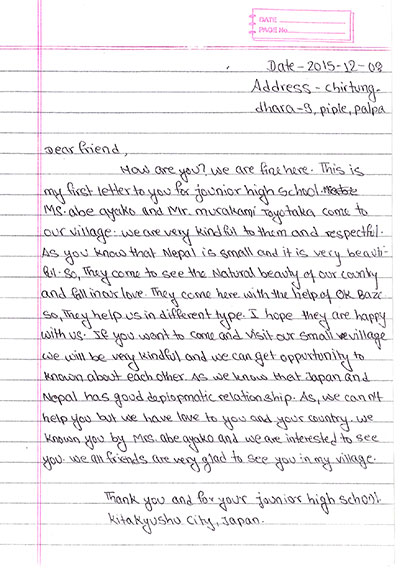 DATE
PAGE No.
Date-2015-12-03
Address - chirtung-
dhara-9, piple, palpa
Dear friend,
How are you? we are fine here. This is
my first letter to you for jounior high school.
Ms. abe ayako and Mr. murakami Toyotaka come to
our village. we are very kindful to them and respectful.
As you know that Nepal is small and it is very beauti-
ful. so, They come to see the Natural beauty of our country
and fall in our love. They come here with the help of OK Bazi
so, They help us in different type. I hope they are happy
with us. If you want to come and visit our small village
we will be very kindful and we can get oppurtunity to
known about each other. As we know that Japan and
Nepal has good daplopmatic relationship. As, we can not
help you but we have love to you and your country. we
known you by Mrs. abe ayako and we are interested to see
you. we all friends are very glad to see you in my village.
Thank you and for your jounior high school
kitakyushu city, Japan.